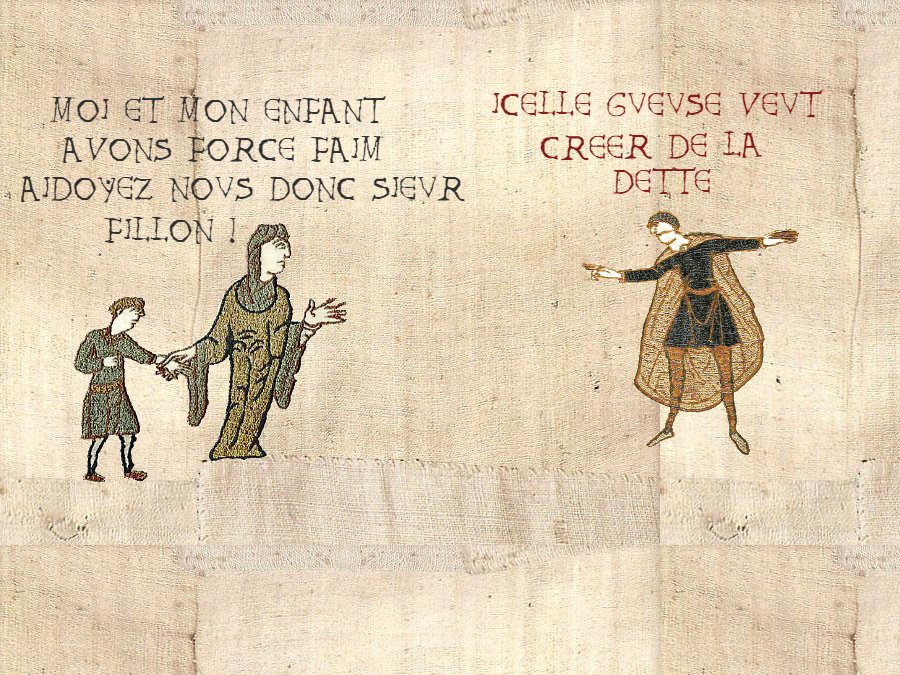 MOI ET MON ENFANT
AVONS FORCE FAIM
AIDOYEZ NOVS DONC SIEVR
FILLON !
ICELLE GVEVSE VEVT
CREER DE LA
DETTE